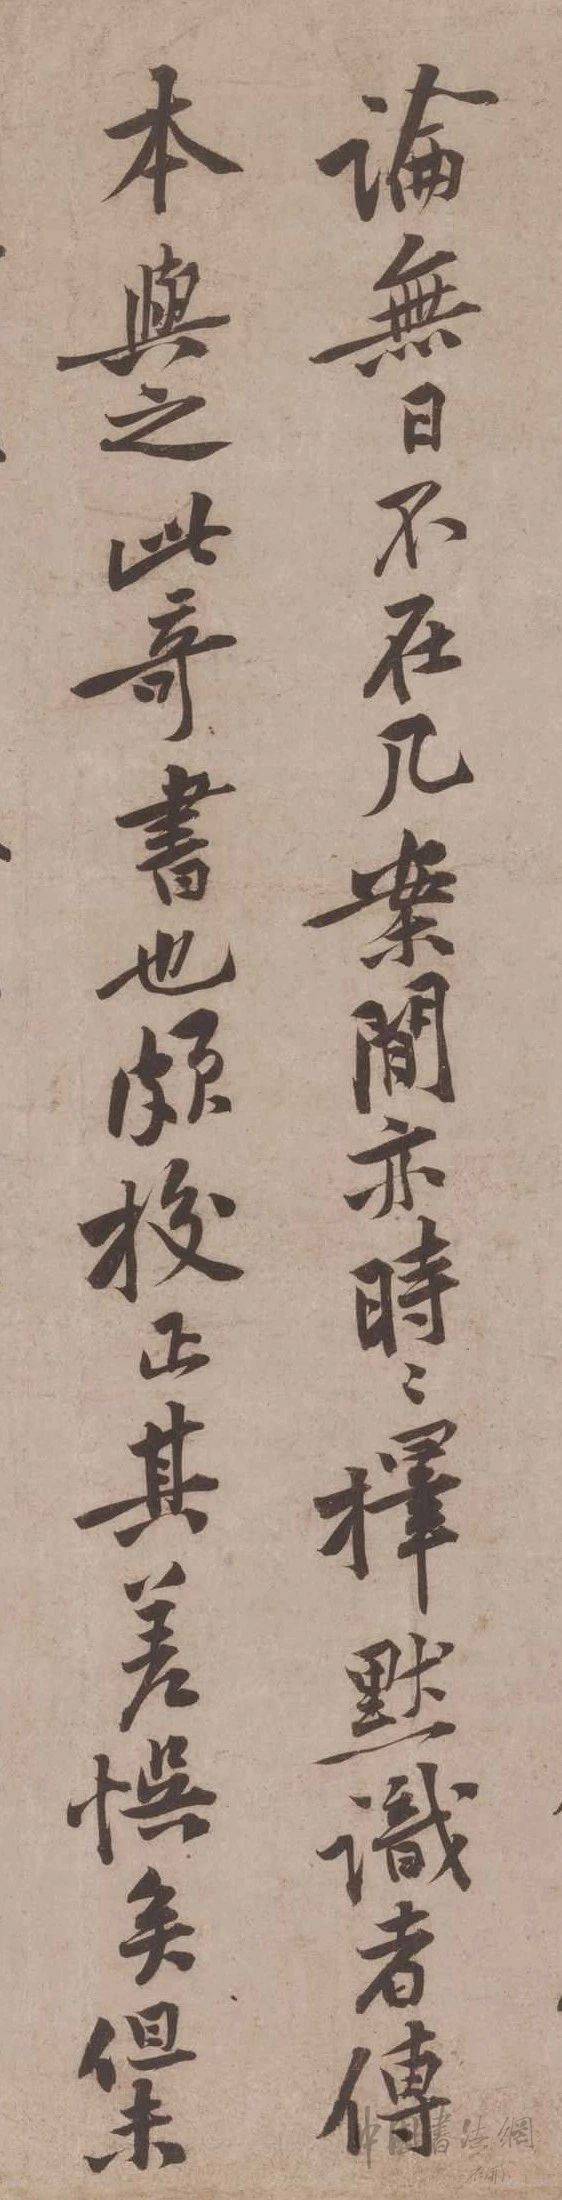 論無日不在几案間亦時〻擇默識者傳
本與之此奇書也頗挍正其差悮矣但未
中国書法網